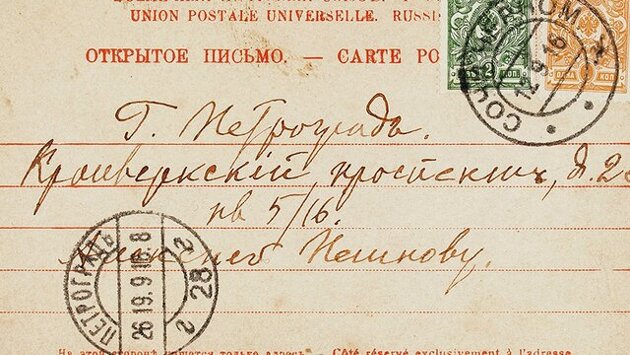 UNION POSTALE UNIVERSELLE. RUSSI
ОТКРЫТОЕ ПИСЬМО. — CARTE PO
2 КОП.
ОДНА КОП.
СОЧИ ЧЕРНОМ
12 9 16
Г. Петрограда.
Кронверкскій проспектъ, д. 23
кв 5/16.
Пешкову.
ПЕТРОГРАДЪ
26 19.9 16. 8
2 28 2
На этой сторонѣ пишется только адресъ. — Côté réservé exclusivement à l'adresse.